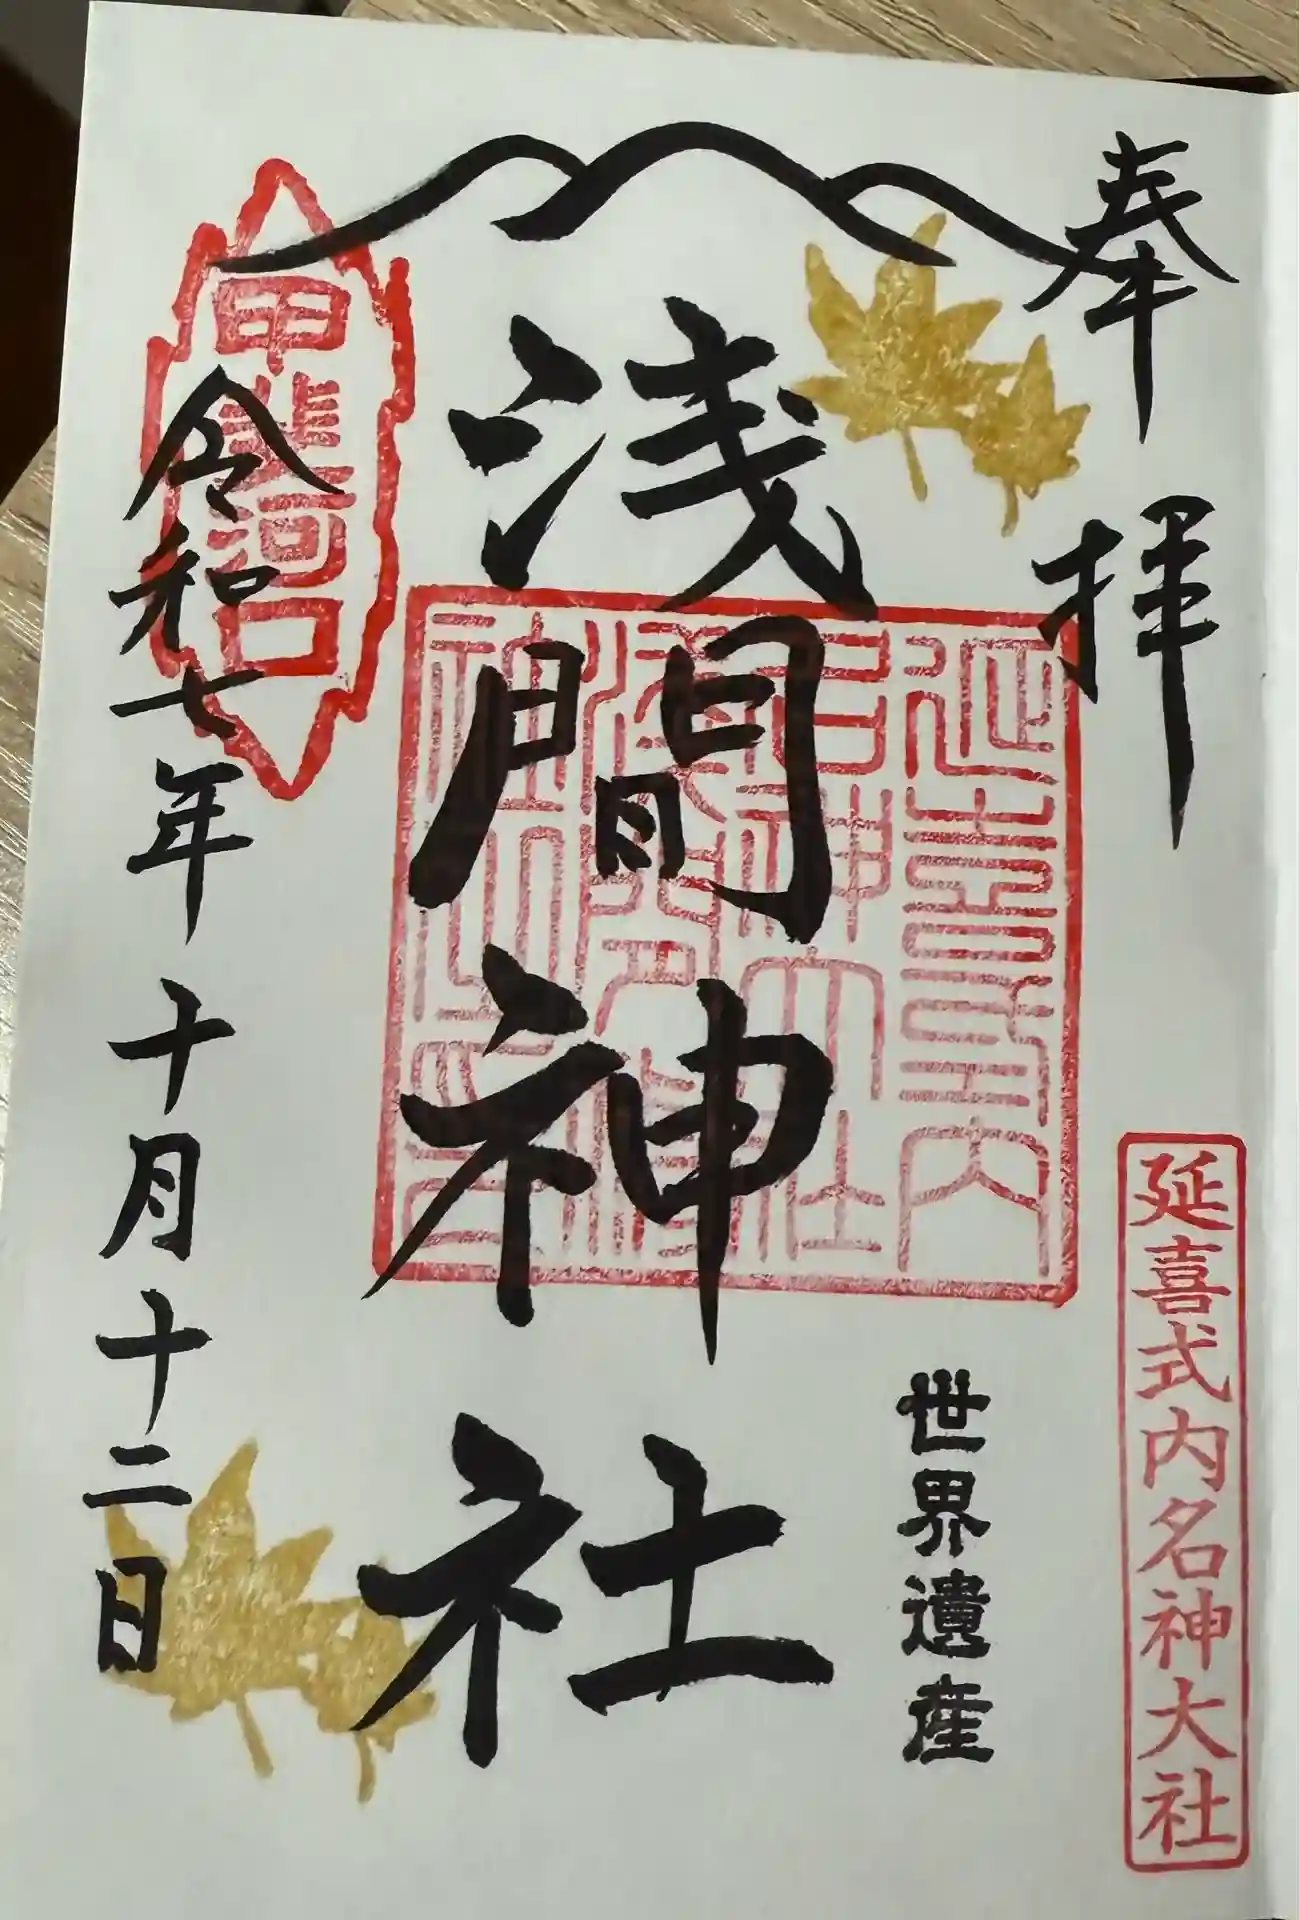 奉拝
延喜式内名神大社
世界遺産
浅間神社
延喜式内
名神大社
甲斐河口
令和七年十月十二日